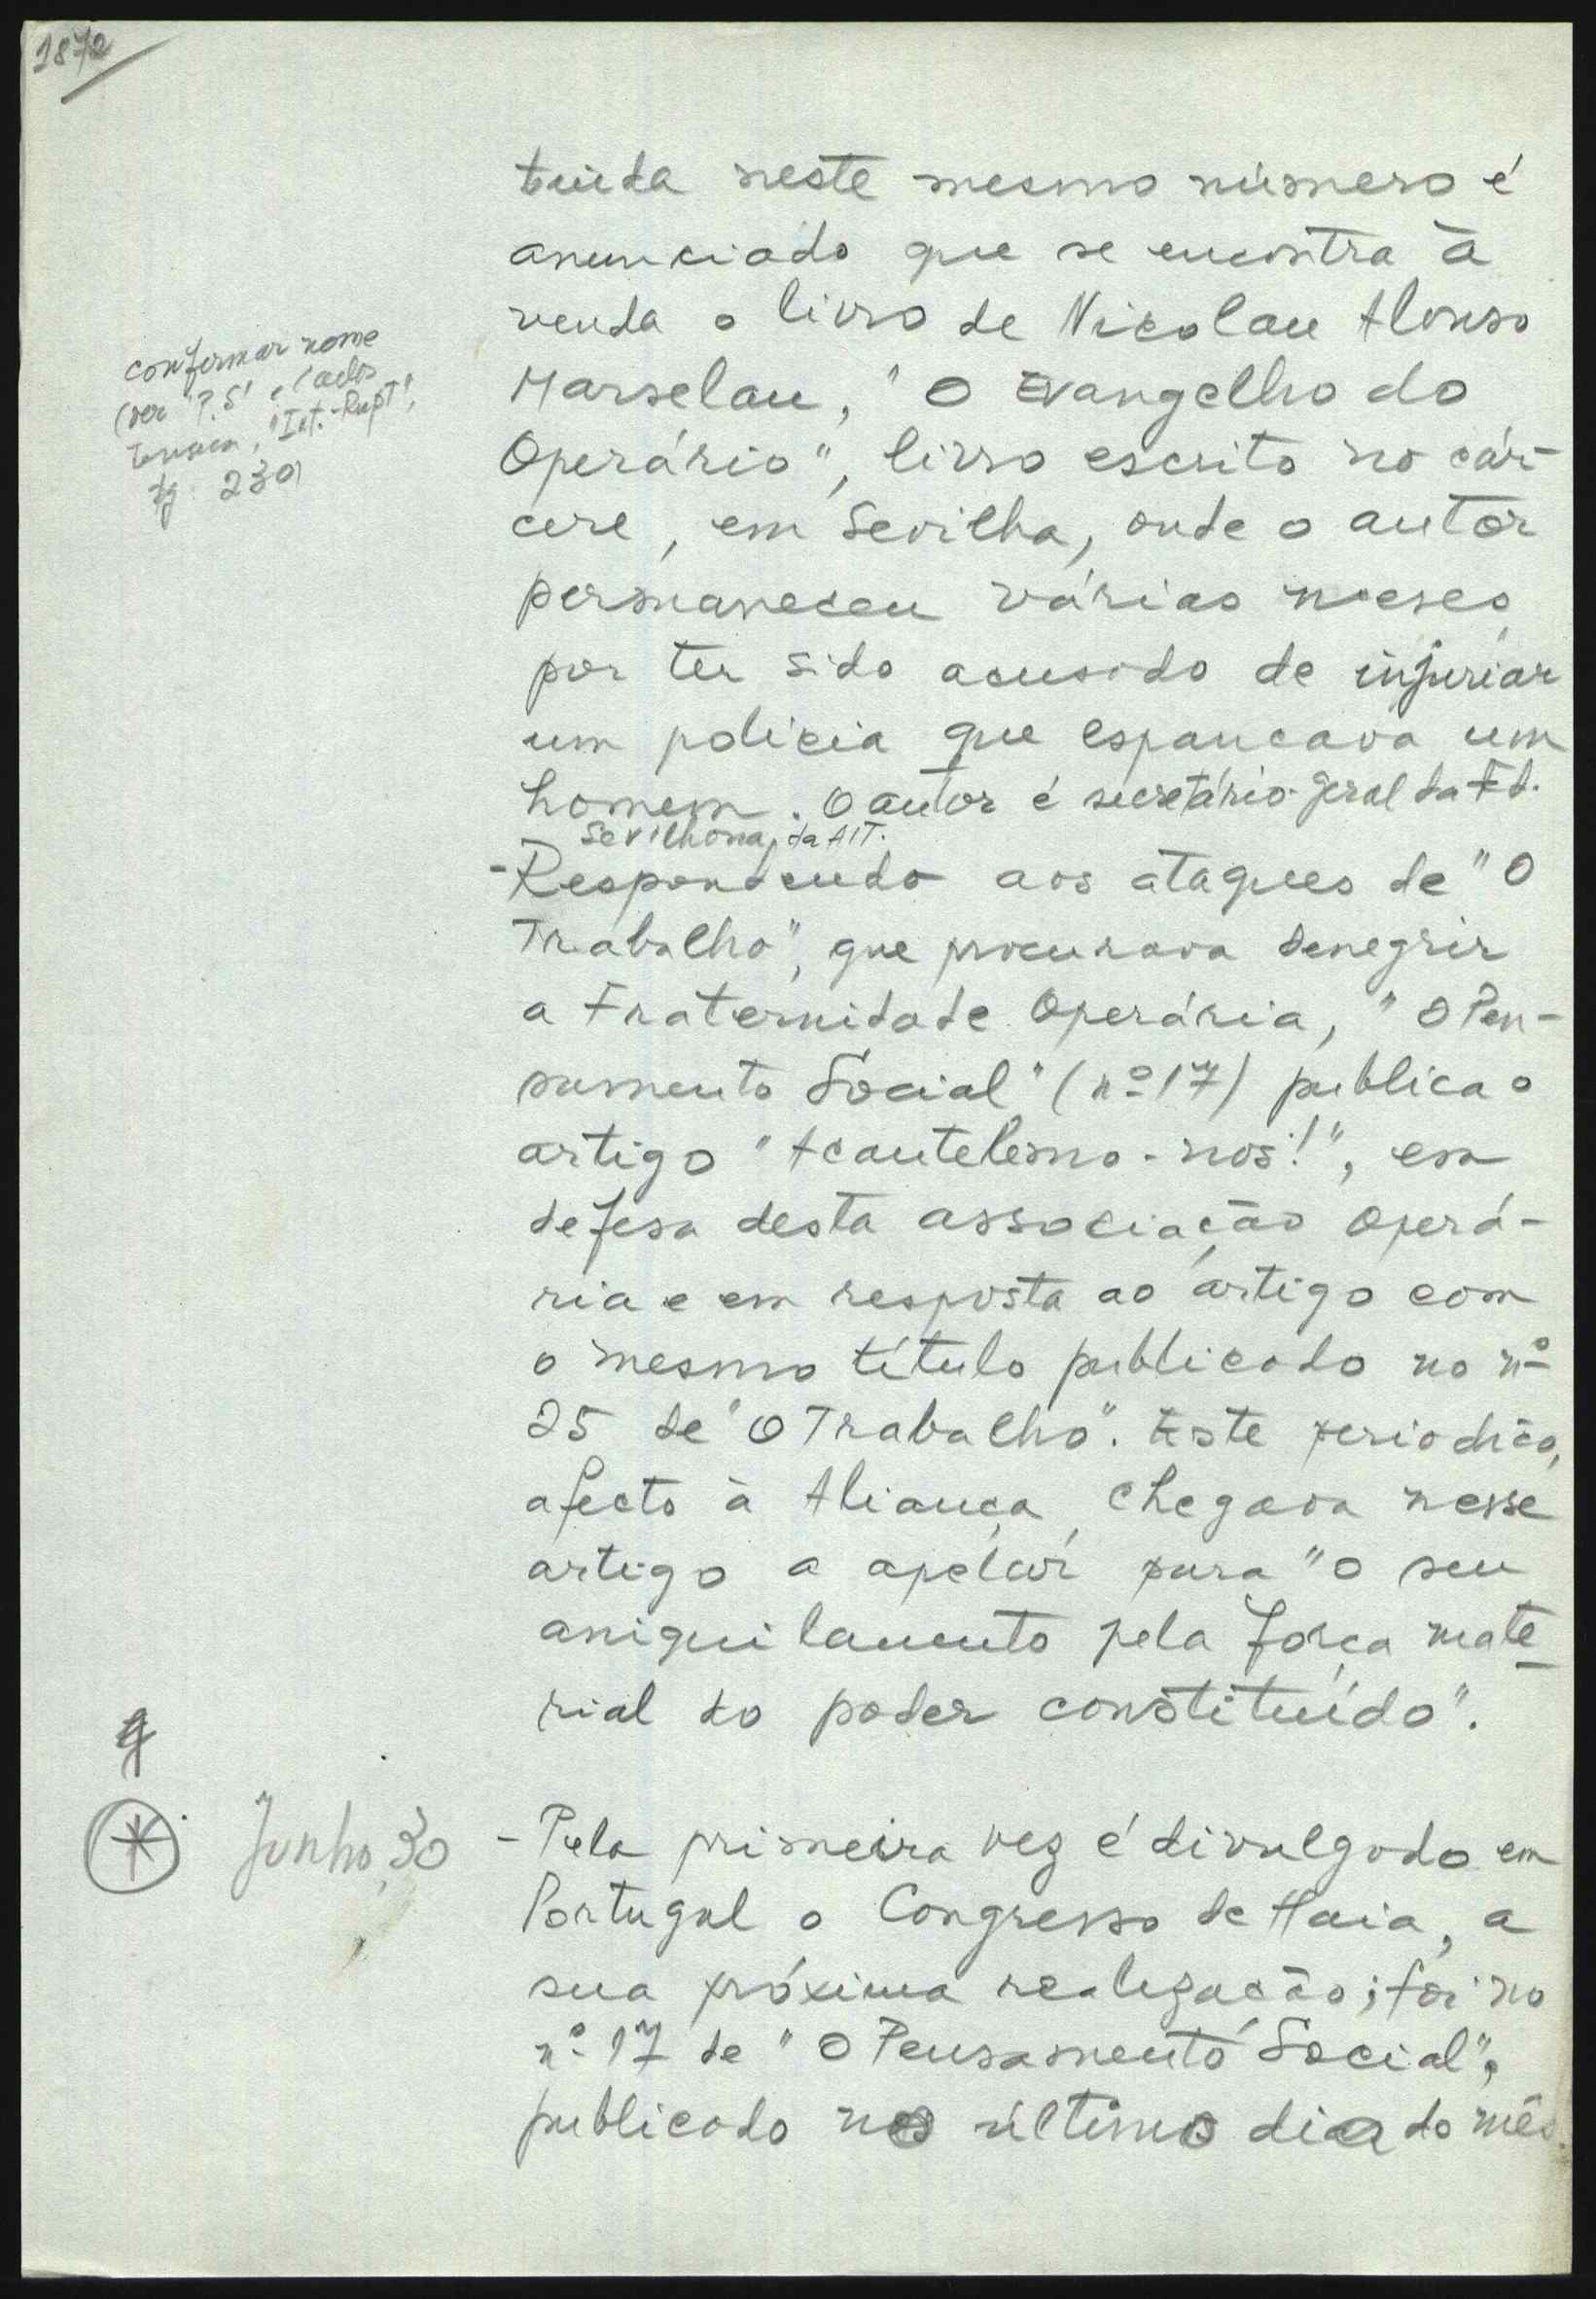 1872
neste mesmo número é
anunciado que se encontra à
venda o livro de Nicolau Alonso
Marselau, "O Evangelho do
Operário", livro escrito no cár-
cere, em Sevilha, onde o autor
permaneceu várias meses
por ter sido acusado de injuriar
um polícia que espancava um
homem. O autor é secretário-geral da Fd.
Sevilhana, da AIT.
- Respondendo aos ataques de "O
Trabalho", que procurava denegrir
a Fraternidade Operária, "O Pen-
samento Social" (nº 17) publica o
artigo "Acautelemo-nos!", em
defesa desta associação operá-
ria e em resposta ao artigo com
o mesmo título publicado no nº
25 de "O Trabalho". Este periodico,
afecto à Aliança, chegava nesse
artigo a apelar para "o seu
aniquilamento pela força mate-
rial do poder constituído".
confirmar nome
(ver "P.S" e
"Int.-Rupt",
230)
Junho, 30
- Pela primeira vez é divulgado em
Portugal o Congresso de Haia, a
sua próxima realização; foi no
nº 17 de "O Pensamento Social",
publicado no último dia do mês.